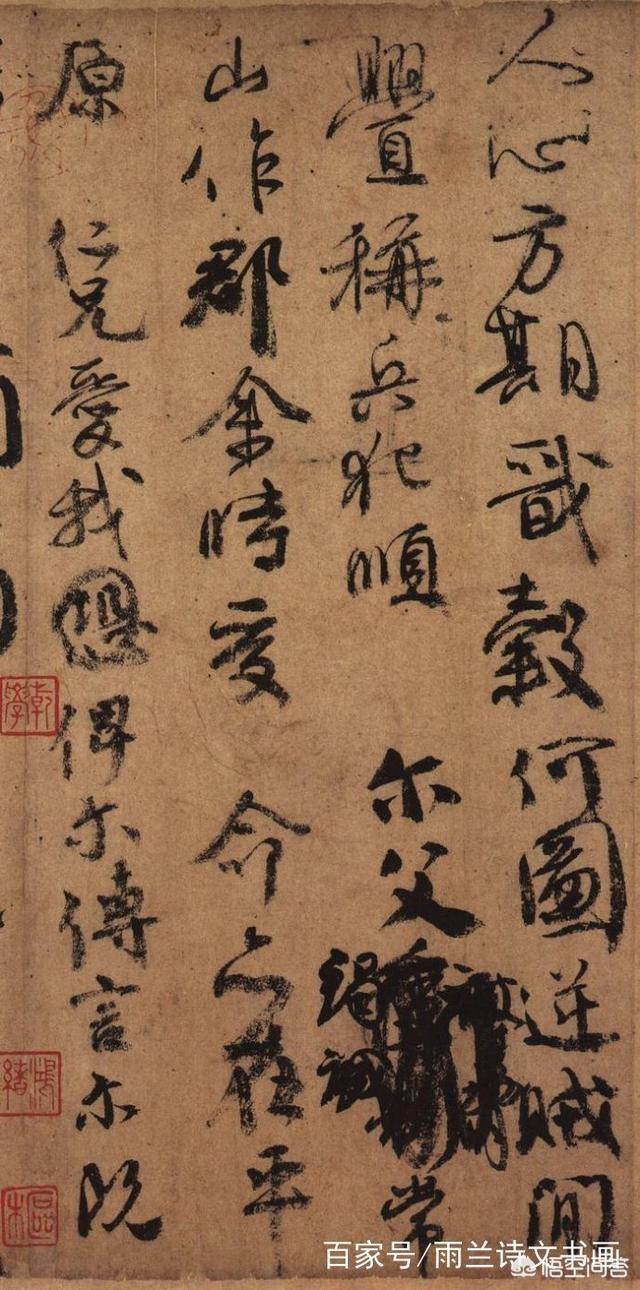 人心方期戩穀何圖逆賊間
釁稱兵犯順 尓父竭誠常
山作郡余時受 命亦在平
原 仁兄愛我俾尓傳言尓既
乾學
鴻緒
百家号/雨兰诗文书画
悟空问答